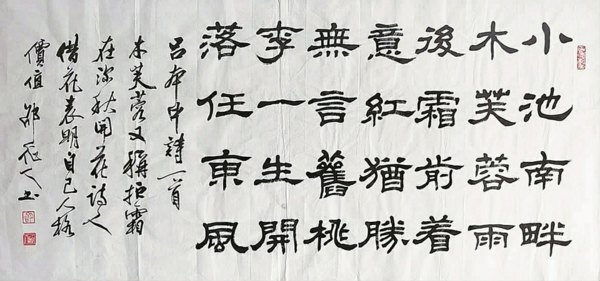 小池南畔
木芙蓉雨
後霜前着
意紅猶勝
無言舊桃
李一生開
落任東風
吕本中詩一首
木芙蓉又稱拒霜
在深秋開花詩人
借花表明自己人格
價值
人书